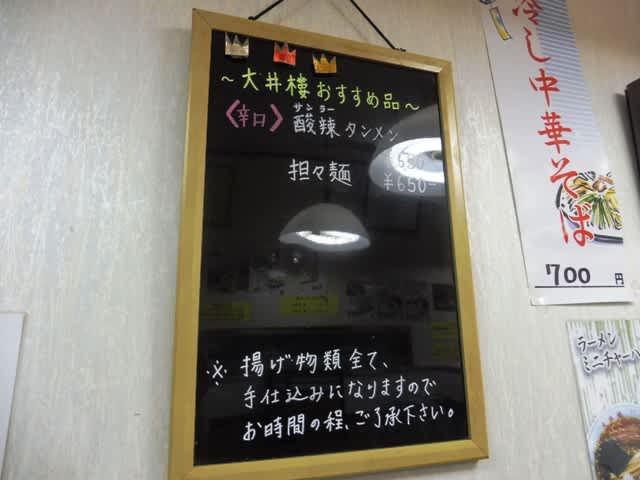 ~大井樓おすすめ品~
サンラー
〈辛口〉酸辣タンメン
650
担々麺 ¥650-
※揚げ物類全て、
手仕込みになりますので
お時間の程、ご了承下さい。
冷し中華そば
700円
ラーメン
ミニチャーハ